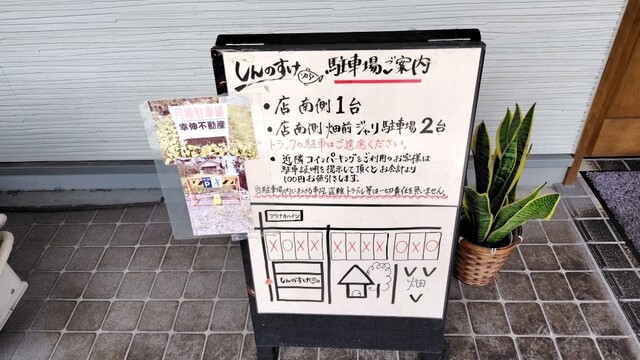 しんのすけ 駐車場ご案内
• 店 南側 1台
• 店 南側 畑前ジャリ駐車場 2台
トラックの駐車はご遠慮ください。
• 近隣コインパーキングをご利用のお客様は
駐車証明を提示して頂くとお会計より
100円お値引きします。
当駐車場内における事故、盗難、トラブル等は一切責任を負いません。
幸伸不動産
プラナカハイツ
X O X X X X X X O X O
しんのすけ
畑